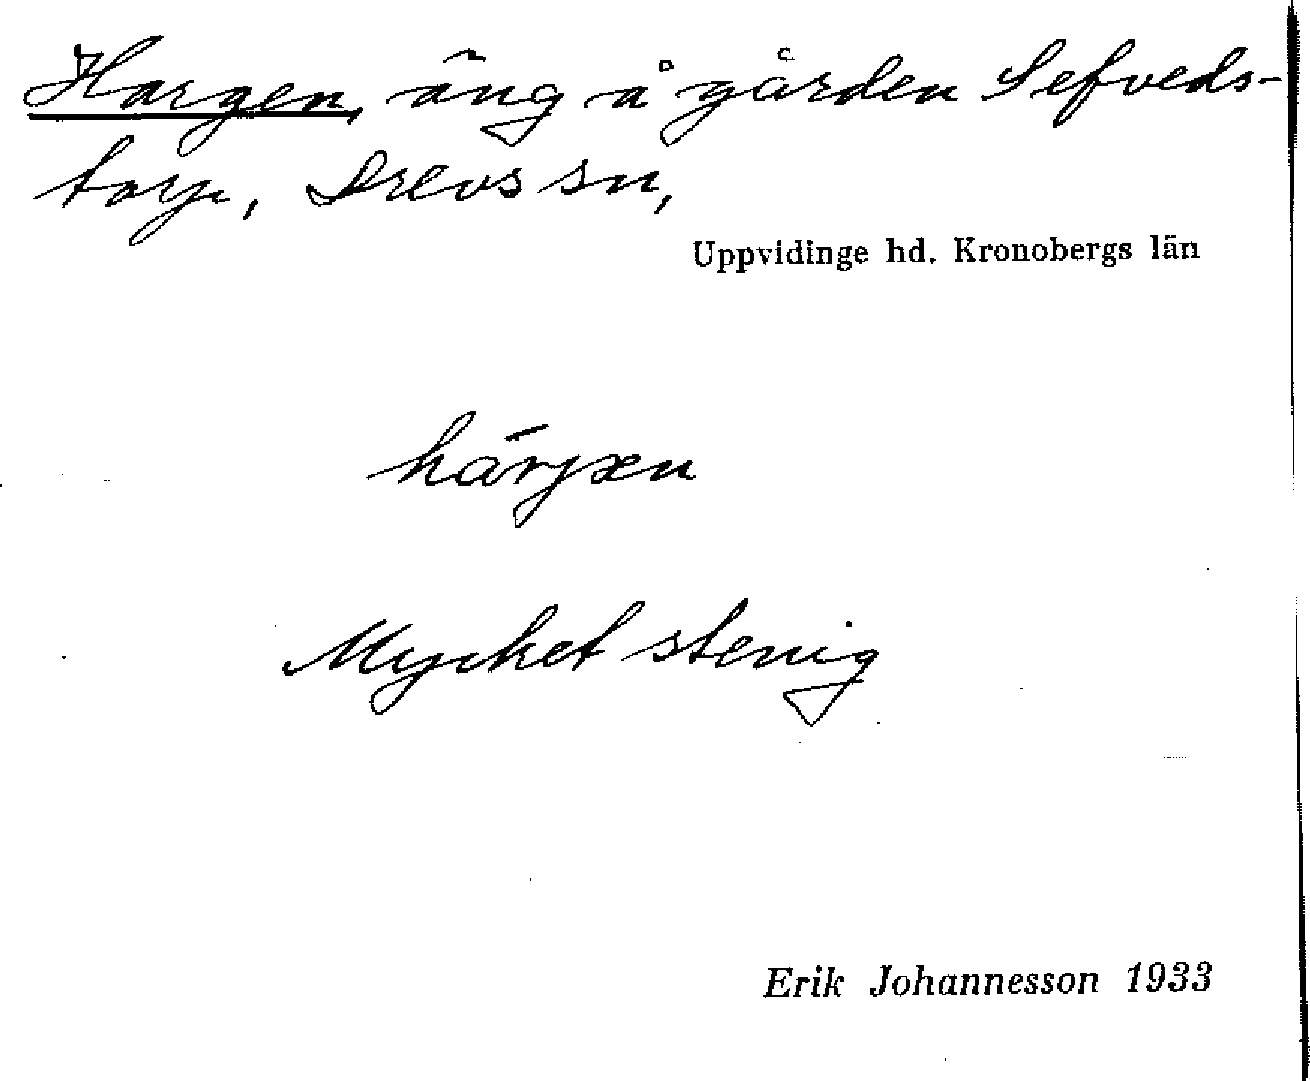 Hargen, äng å gården Sefveds-
torp, Drevs sn,
Uppvidinge hd. Kronobergs län
hārjæn
Mycket stenig
Erik Johannesson 1933